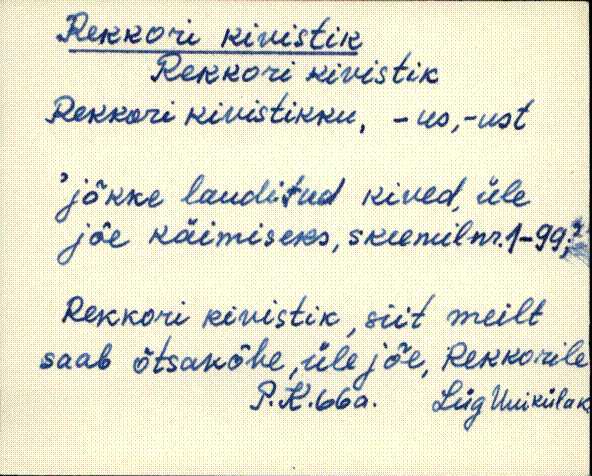 Rekkori kivistik
Rekkori kivistik
Rekkori kivistikku, -us, -ust
'jõkke lauditud kived, üle
jõe käimiseks, skeemil nr. 1-99;'
Rekkori kivistik, siit meilt
saab õtsakõhe, üle jõe, Rekkorile
P.K. 66 a. Lüg Unikülak